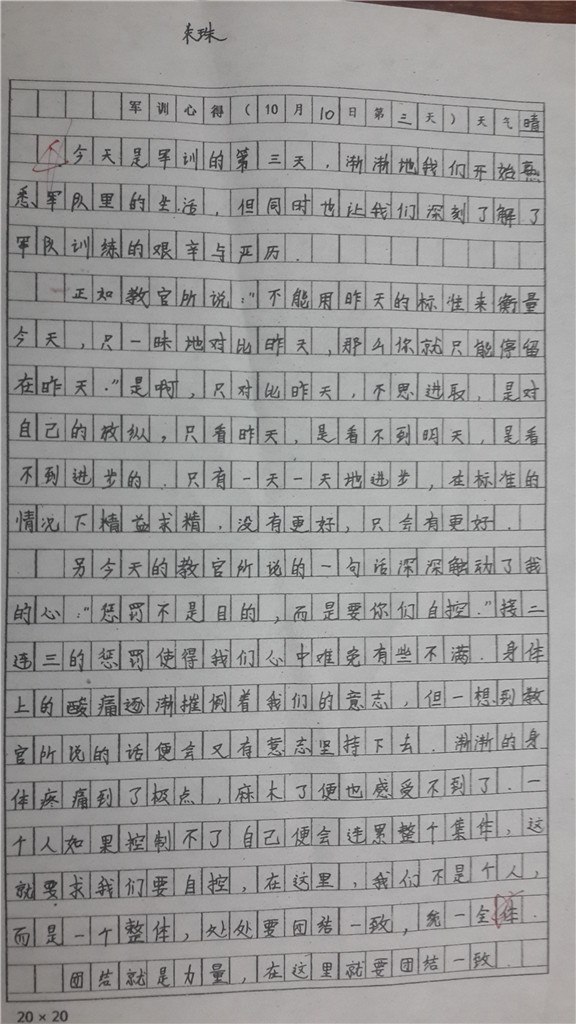 军训心得(10月10日第三天)天气晴
今天是军训的第三天,渐渐地我们开始熟
悉军队里的生活,但同时也让我们深刻了解了
军队训练的艰辛与严厉.
正如教官所说:"不能用昨天的标准来衡量
今天,只一昧地对比昨天,那么你就只能停留
在昨天."是啊,只对比昨天,不思进取,是对
自己的放纵,只看昨天,是看不到明天,是看
不到进步的.只有一天一天地进步,在标准的
情况下精益求精.没有更好,只会有更好.
另今天的教官所说的一句话深深触动了我
的心:"惩罚不是目的,而是要你们自控."接二
连三的惩罚使得我们心中难免有些不满.身体
上的酸痛逐渐摧倒着我们的意志,但一想到教
官所说的话便会又有意志坚持下去.渐渐的身
体疼痛到了极点,麻木了便也感受不到了.一
个人如果控制不了自己便会连累整个集体,这
就要求我们要自控,在这里,我们不是个人,
而是一个整体,处处要团结一致,统一全体.
团结就是力量,在这里就要团结一致.
20×20